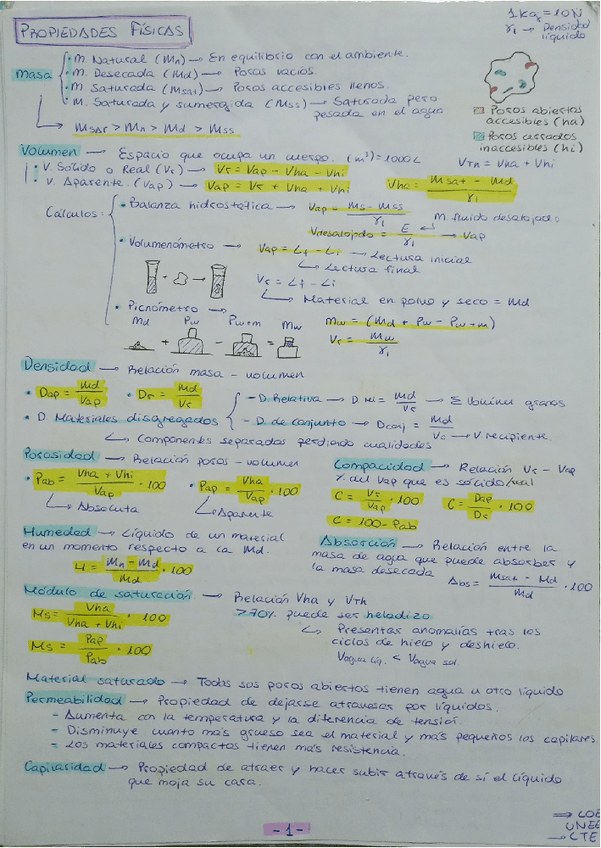 PROPIEDADES FÍSICAS
1 kg = 10 N
γ₁ → Densidad líquido
Masa
• M. Natural (Mn) → En equilibrio con el ambiente.
• M. Desecada (Md) → Poros vacíos
• M. Saturada (Msat) → Poros accesibles llenos.
• M. Saturada y sumergida (Mss) → Saturada pero pesada en el agua
→ Msat > Mn > Md > Mss
Poros abiertos accesibles (ha)
Poros cerrados inaccesibles (hi)
Volumen → Espacio que ocupa un cuerpo. (m³) = 1000 L
VTh = Vha + Vhi
• V. Sólido o Real (Vr) → Vr = Vap - Vha - Vhi
• V. Aparente. (Vap) → Vap = Vr + Vha + Vhi
Vha = Msat - Md / γ₁
Cálculos:
• Balanza hidrostática → Vap = Ms - Mss / γ₁
M fluido desalojado
Vdesalojado = E / γ₁ → Vap
• Volumenómetro → Vap = Lf - Li → Lectura inicial
→ Lectura final
Vr = Lf - Li
→ Material en polvo y seco = Md
• Picnómetro →
Md Pw Pw+m Mw
+ - =
Mw = (Md + Pw - Pw+m)
Vr = Mw / γ₁
Densidad → Relación masa - volumen
• Dap = Md / Vap
• Dr = Md / Vr
• D. Materiales disgregados
- D. Relativa → = Md / Vr → Σ granos
- D. de conjunto → Dconj = Md / Vc → V. recipiente.
→ Componentes separados perdiendo cualidades
Porosidad → Relación poros - volumen
• Pab = Vha + Vhi / Vap · 100
→ Absoluta
• Pap = Vha / Vap · 100
→ Aparente
Compacidad → Relación Vr - Vap
% del Vap que es sólido/real
C = Vr / Vap · 100
C = Dap / Dr · 100
C = 100 - Pab
Humedad → Líquido de un material
en un momento respecto a la Md.
H = Mn - Md / Md · 100
Absorción → Relación entre la
masa de agua que puede absorber y
la masa desecada
Abs = Msat - Md / Md · 100
Módulo de saturación → Relación Vha y VTh
Ms = Vha / Vha + Vhi · 100
>70% puede ser heladizo
Ms = Pap / Pab · 100
→ Presentar anomalías tras los
ciclos de hielo y deshielo.
Vagua líq. < Vagua sol.
Material saturado → Todos sus poros abiertos tienen agua u otro líquido
Permeabilidad → Propiedad de dejarse atravesar por líquidos.
- Aumenta con la temperatura y la diferencia de tensión.
- Disminuye cuanto más grueso sea el material y más pequeños los capilares.
- Los materiales compactos tienen más resistencia.
Capilaridad → Propiedad de atraer y hacer subir através de sí el líquido
que moja su cara.
- 1 -
⇒ LOE
UNE
→ CTE